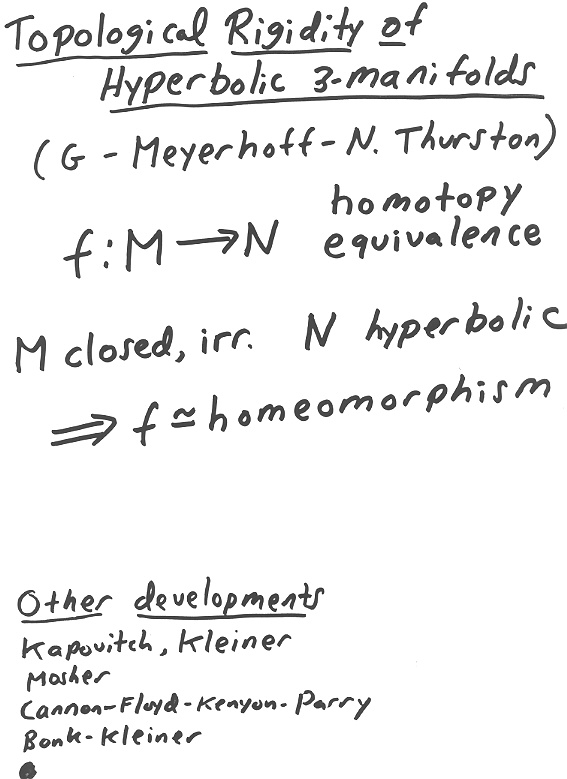 Topological Rigidity of
Hyperbolic 3-manifolds
(G - Meyerhoff - N. Thurston)
f: M → N homotopy equivalence
M closed, irr. N hyperbolic
⟹ f ≃ homeomorphism
Other developments
Kapovitch, Kleiner
Mosher
Cannon-Floyd-Kenyon-Parry
Bonk-Kleiner